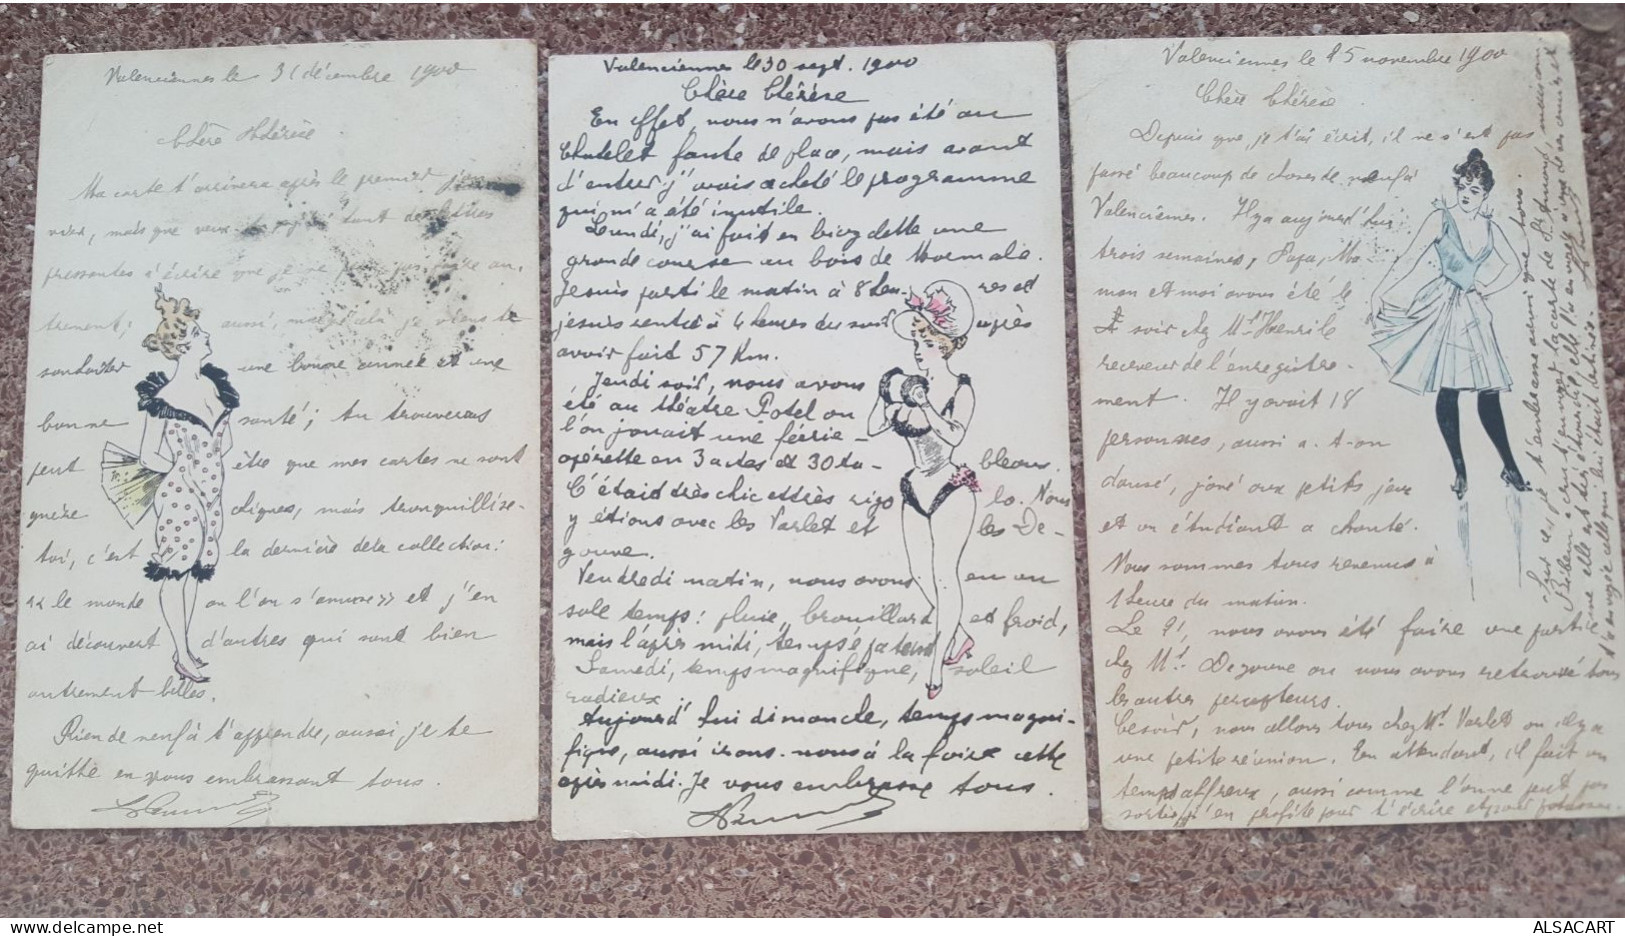 Valenciennes le 31 décembre 1900
Chère Thérèse.
Ma carte t'arrivera après le premier
mais que veux-tu, j'ai tant de lettres
pressantes à écrire que je ne puis pas faire au-
trement; aussi, malgré celà je viens te
souhaiter une bonne année et une
bonne santé; tu trouveras
peut être que mes cartes ne sont
guère dignes, mais tranquillise-
toi, c'est la dernière de la collection:
« le monde où l'on s'amuse » et j'en
ai découvert d'autres qui sont bien
autrement belles.
Rien de neuf à t'apprendre, aussi je te
quitte en vous embrassant tous.
Valenciennes le 30 sept. 1900
Chère Thérèse
En effet, nous n'avons pas été au
Chatelet faute de place, mais avant
d'entrer j'avais acheté le programme
qui m'a été inutile.
Lundi, j'ai fait en bicyclette une
grande course au bois de Mormale.
Je suis parti le matin à 8 heu- res et
je suis rentré à 4 heures du soir après
avoir fait 57 Km.
Jeudi soir, nous avons
été au théâtre Potel où
l'on jouait une féerie-
opérette en 3 actes et 30 ta- bleaux.
C'était très chic et très rigo lo. Nous
y étions avec les Varlet et les De-
gouve.
Vendredi matin, nous avons eu un
sale temps: pluie, brouillard et froid,
mais l'après midi, temps
Samedi, temps magnifique, soleil
radieux
Aujourd'hui dimanche, temps magni-
fique, aussi irons-nous à la foire cette
après midi. Je vous embrasse tous.
Valenciennes le 15 novembre 1900
Chère Thérèse.
Depuis que je t'ai écrit, il ne s'est pas
passé beaucoup de choses de neuf à
Valenciennes. Il y a aujourd'hui
trois semaines, Papa, Ma
man et moi avons été le
soir chez Mr Henri le
receveur de l'enregistre-
ment. Il y avait 18
personnes, aussi a-t-on
dansé, joué aux petits jeux
et un étudiant a chanté.
Nous sommes tous revenus à
1 heure du matin.
Le 9, nous avons été faire une partie
chez Mr. Degouve où nous avons retrouvé tous
les autres percepteurs.
Ce soir, nous allons tous chez Mr Varlet où il y a
une petite réunion. En attendant, il fait un
temps affreux, aussi comme l'on ne peut pas
sortir, j'en profite pour t'écrire et pour
t'embrasse ainsi que tous.
ALSACART